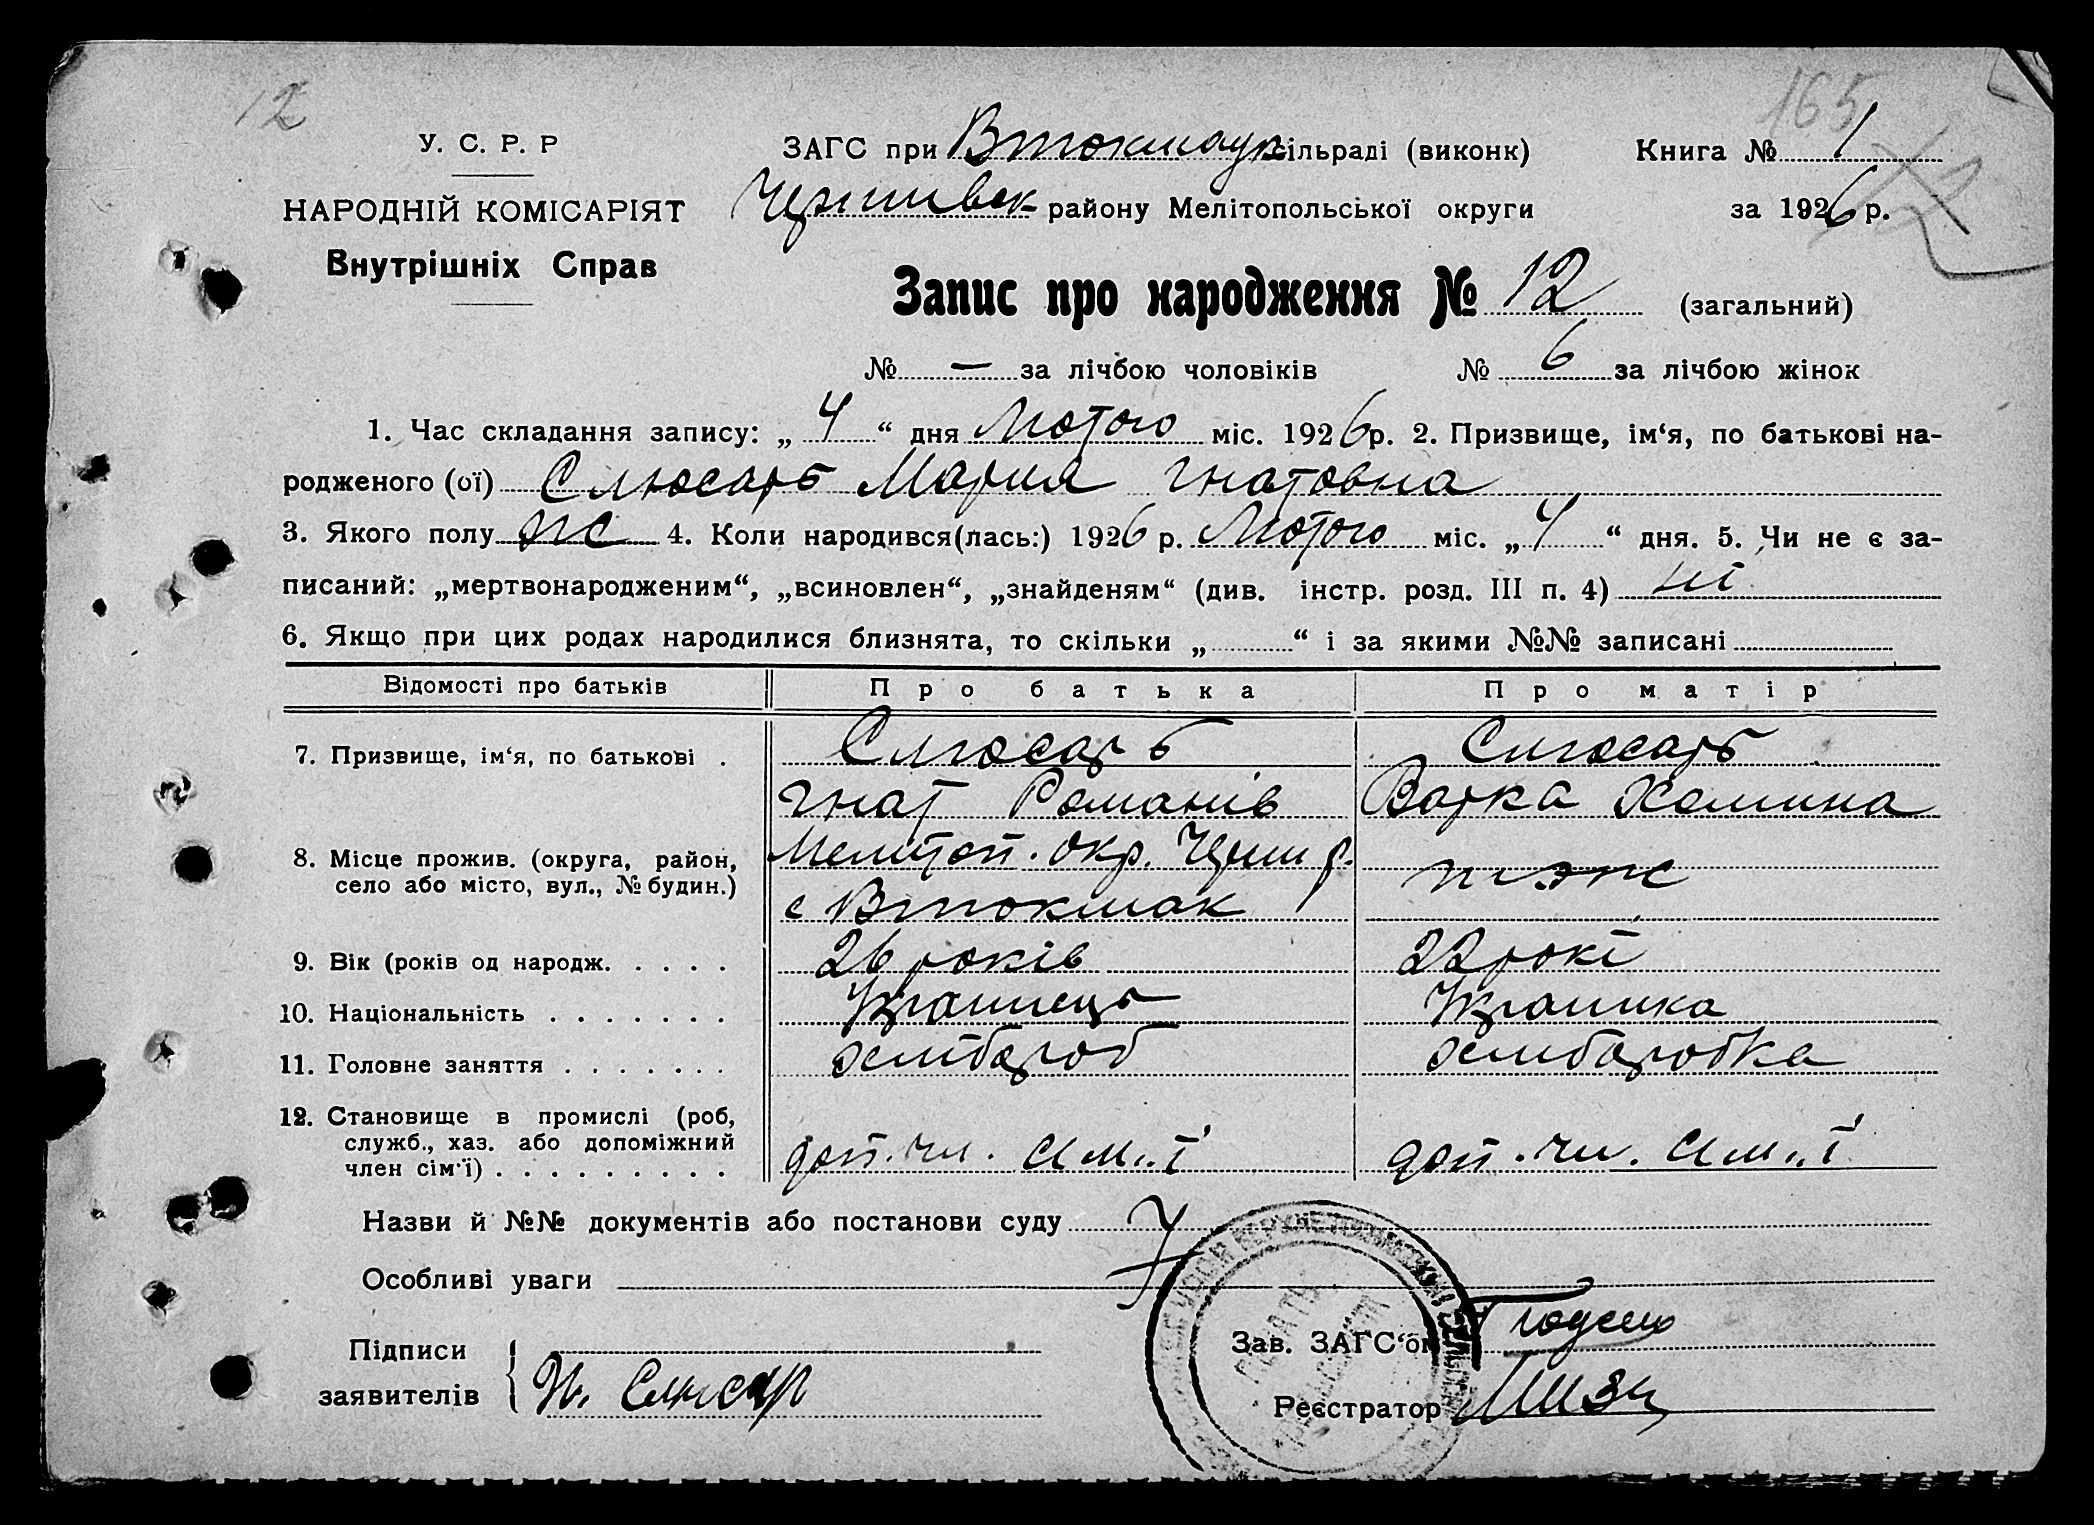 12
165
У. С. Р. Р
НАРОДНІЙ КОМІСАРІЯТ
Внутрішніх Справ
ЗАГС при Втокмацк сільраді (виконк) Книга № 1
району Мелітопольської округи за 1926 р.
Запис про народження № 12 (загальний)
№ — за лічбою чоловіків № 6 за лічбою жінок
1. Час складання запису: „ 4 “ дня Лютого міс. 1926 р. 2. Призвище, ім‘я, по батькові на-
родженого (ої) Слюсарь Мария Гнатовна
3. Якого полу ж 4. Коли народився(лась:) 1926 р. Лютого міс. „ 4 “ дня. 5. Чи не є за-
писаний: „мертвонародженим“, „всиновлен“, „знайденям“ (див. інстр. розд. III п. 4) ні
6. Якщо при цих родах народилися близнята, то скільки „ “ і за якими №№ записані
Відомості про батьків Про батька Про матір
7. Призвище, ім‘я, по батькові . Слюсарь Слюсарь
Гнат Романів Варка Хомина
8. Місце прожив. (округа, район, Меліτοп. окр. Черни р.
село або місто, вул., № будин.) с Втокмак теж
9. Вік (років од народж. . . . . 26 років 22 рокі
10. Національність . . . . . . . Украинець Украинка
11. Головне заняття . . . . . . . хлибороб хлиборобка
12. Становище в промислі (роб,
служб., хаз. або допоміжний
член сім‘ї) . . . . . . . . . доп. чл. сим"ї доп. чл. сим"ї
Назви й №№ документів або постанови суду
Особливі уваги
Підписи
заявителів
Слюсар
Зав. ЗАГС‘ом
Реєстратор